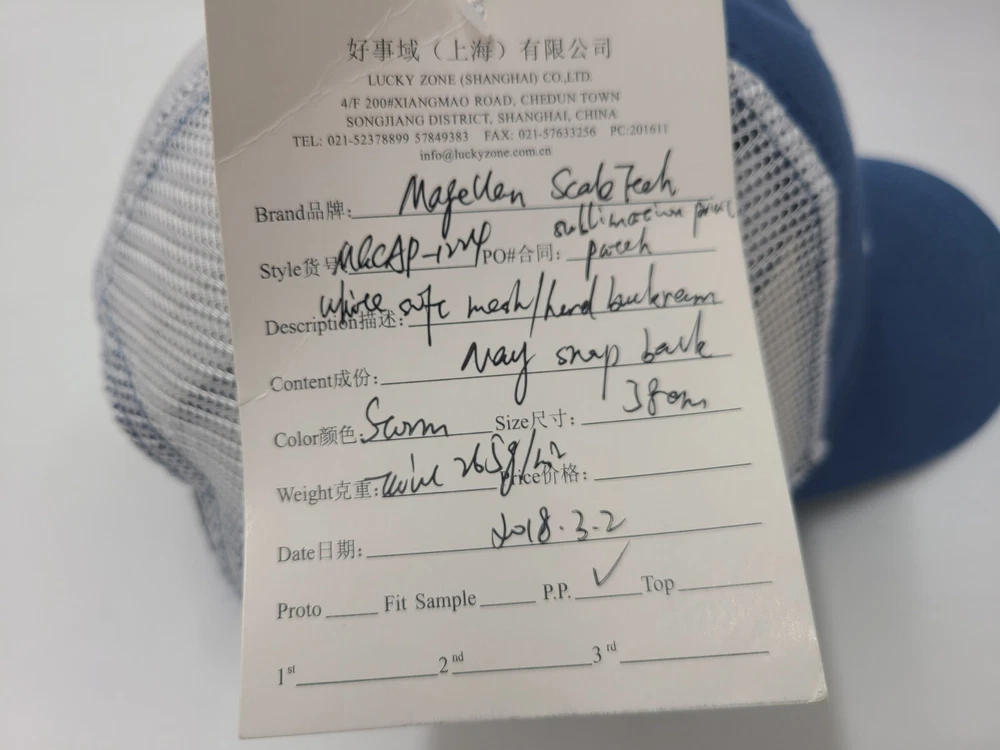 好事域（上海）有限公司
LUCKY ZONE (SHANGHAI) CO.,LTD.
4/F 200#XIANGMAO ROAD, CHEDUN TOWN
SONGJIANG DISTRICT, SHANGHAI, CHINA
TEL: 021-52378899 57849383 FAX: 021-57633256 PC:201611
info@luckyzone.com.cn
Brand品牌: Magellan Scale Tech
sublimation print
Style货号 PO#合同: patch
Description描述: white soft mesh/hard buckram
Content成份: Navy snap back
Color颜色: Storm Size尺寸: 38cm
Weight克重: twill 265g/m² Price价格:
Date日期: 2018.3.2
Proto Fit Sample P.P. ✓ Top
1st 2nd 3rd